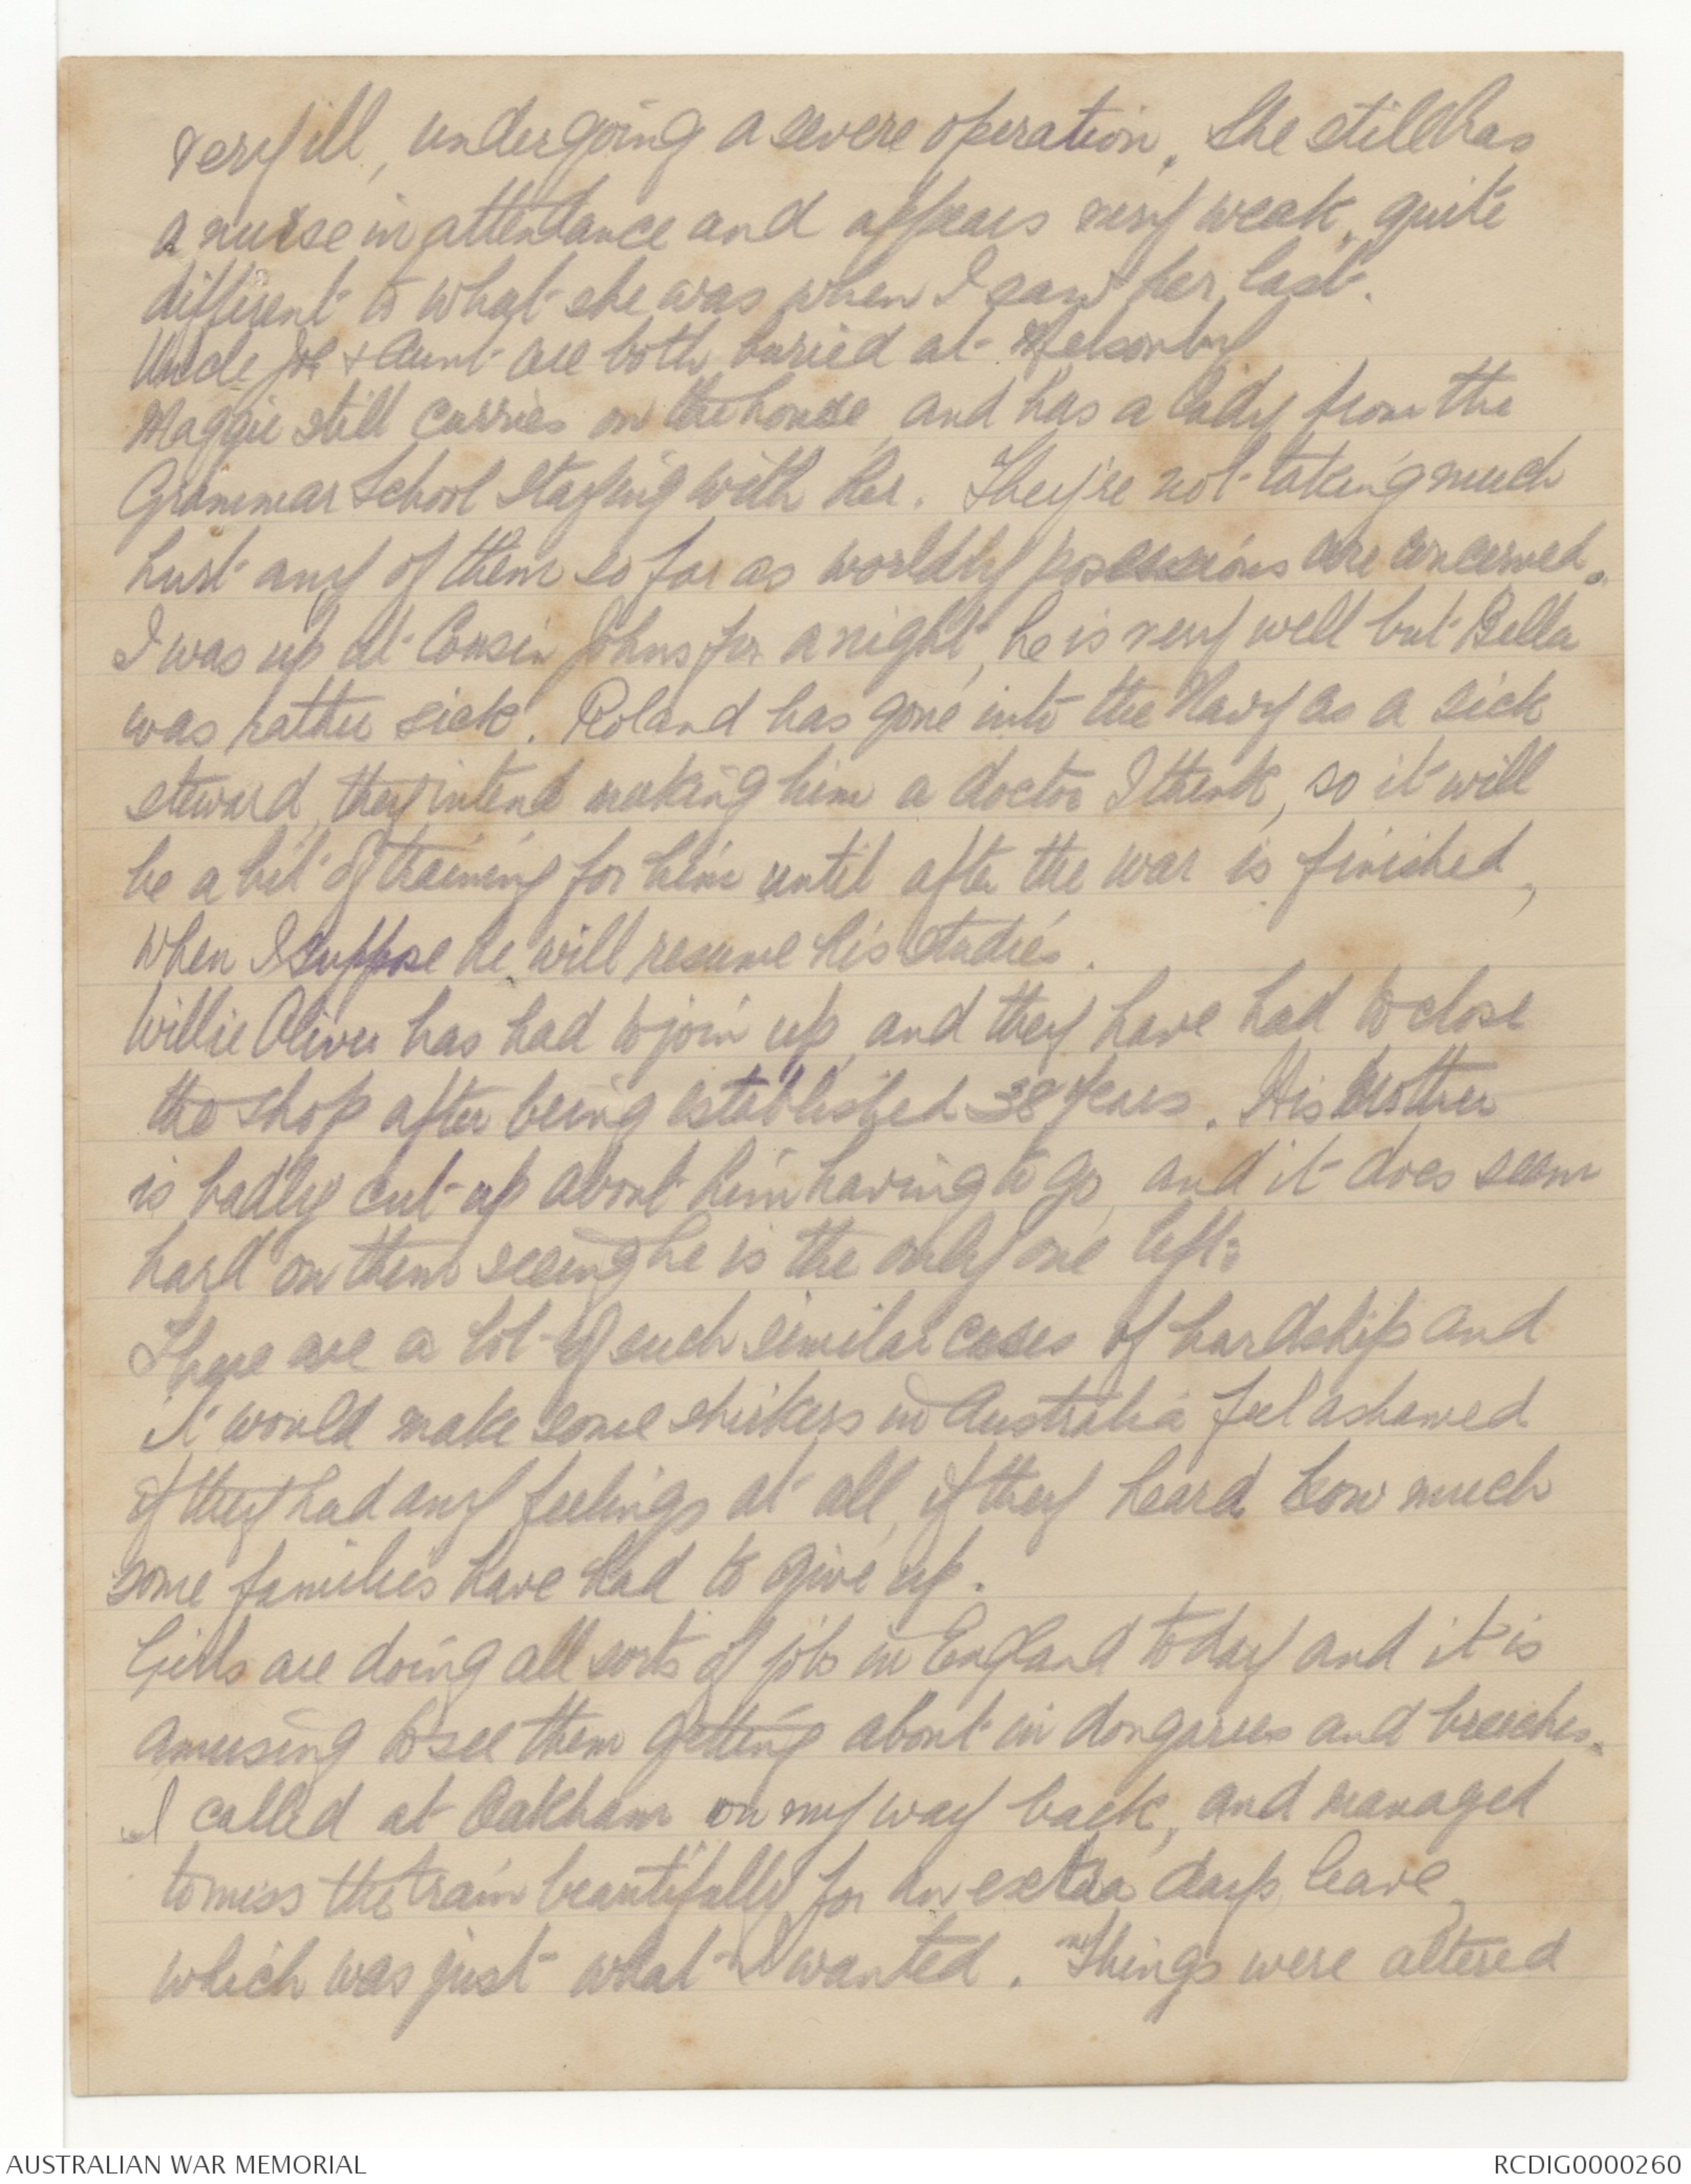 very ill, undergoing a severe operation. She still has
a nurse in attendance and appears very weak, quite
different to what she was when I saw her last.
Uncle Joe & Aunt are both buried at Melsonby
Maggie still carries on the house, and has a lady from the
Grammar School staying with her. They're not taking much
hurt any of them so far as worldly possessions are concerned.
I was up at Cousin Johns for a night, he is very well but Bella
was rather sick. Roland has gone into the Navy as a sick
steward, they intend making him a doctor I think, so it will
be a bit of training for him until after the war is finished,
when I suppose he will resume his studies.
Willie Oliver has had to join up, and they have had to close
the shop after being established 38 years. His Mother
is badly cut up about him having to go, and it does seem
hard on them seeing he is the only one left.
There are a lot of such similar cases of hardship and
it would make some shirkers in Australia feel ashamed
if they had any feelings at all, if they heard how much
some families have had to give up.
Girls are doing all sorts of jobs in England today and it is
amusing to see them getting about in dongarees and breeches.
I called at Oakham on my way back, and managed
to miss the train beautifully for an extra days leave,
which was just what I wanted. Things were altered
AUSTRALIAN WAR MEMORIAL
RCDIG0000260